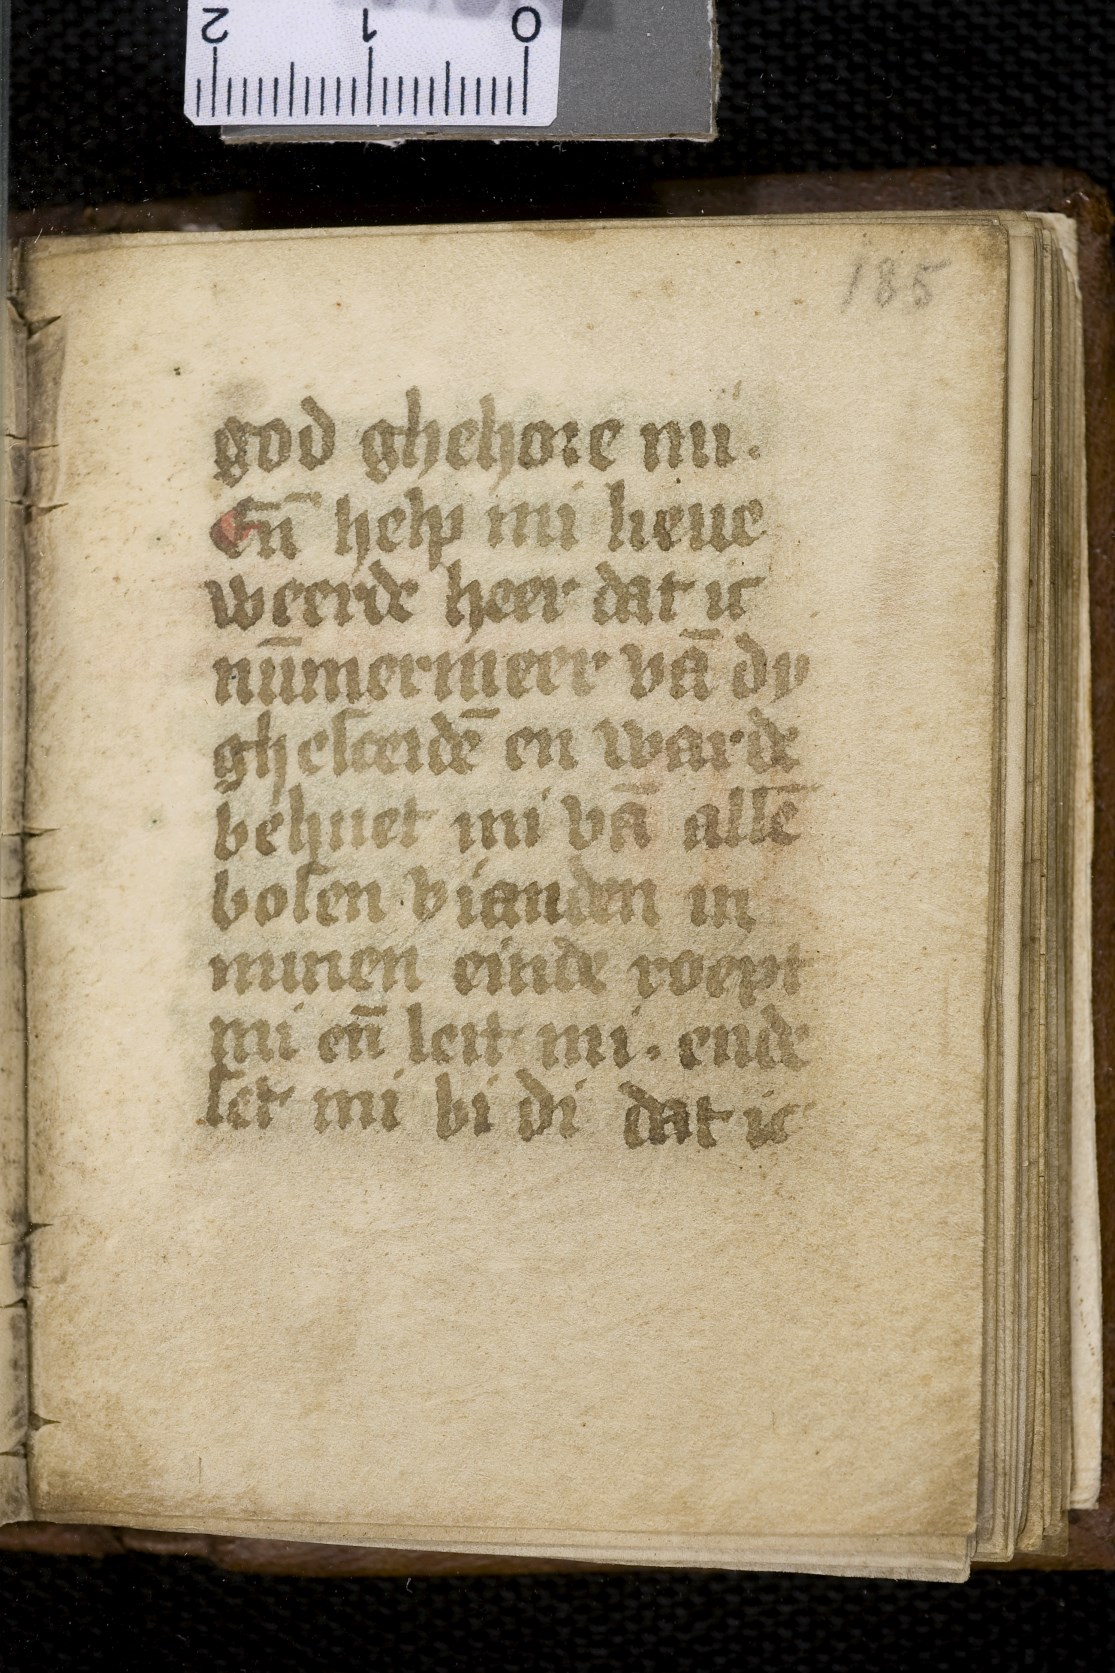 2 1 0
185
god ghehore mi.
En̄ help mi lieue
weerde heer dat ic
nūmermeer vā dy
ghesceidē en warde
behuet mi vā allē
bosen vianden in
minen einde roept
mi en̄ leit mi. ende
set mi bi di dat ic